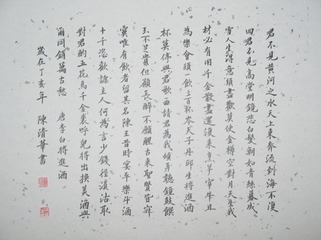 君不見黃河之水天上來奔流到海不復
回君不見高堂明鏡悲白髮朝如青絲暮成
雪人生得意須盡歡莫使金樽空對月天生我
材必有用千金散盡還復來烹羊宰牛且
為樂會須一飲三百杯岑夫子丹丘生將進酒
杯莫停與君歌一曲請君為我傾耳聽鐘鼓饌
玉不足貴但願長醉不願醒古來聖賢皆寂
寞唯有飲者留其名陳王昔時宴平樂斗酒
十千恣歡謔主人何為言少錢徑須沽取
對君酌五花馬千金裘呼兒將出換美酒與
爾同銷萬古愁 唐李白將進酒
歲在丁亥年 陳清華書